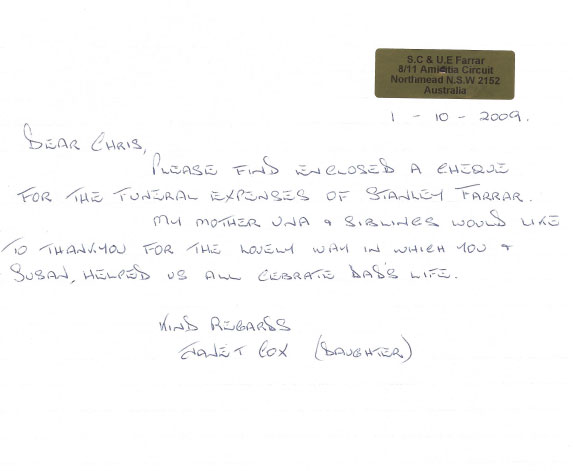 S.C & U.E Farrar
8/11 Amicitia Circuit
Northmead N.S.W 2152
Australia
1 - 10 - 2009.
DEAR CHRIS,
PLEASE FIND ENCLOSED A CHEQUE
FOR THE FUNERAL EXPENSES OF STANLEY FARRAR.
MY MOTHER UNA & SIBLINGS WOULD LIKE
TO THANKYOU FOR THE LOVELY WAY IN WHICH YOU &
SUSAN, HELPED US ALL CEBRATE DAD'S LIFE.
KIND REGARDS
JANET COX (DAUGHTER)